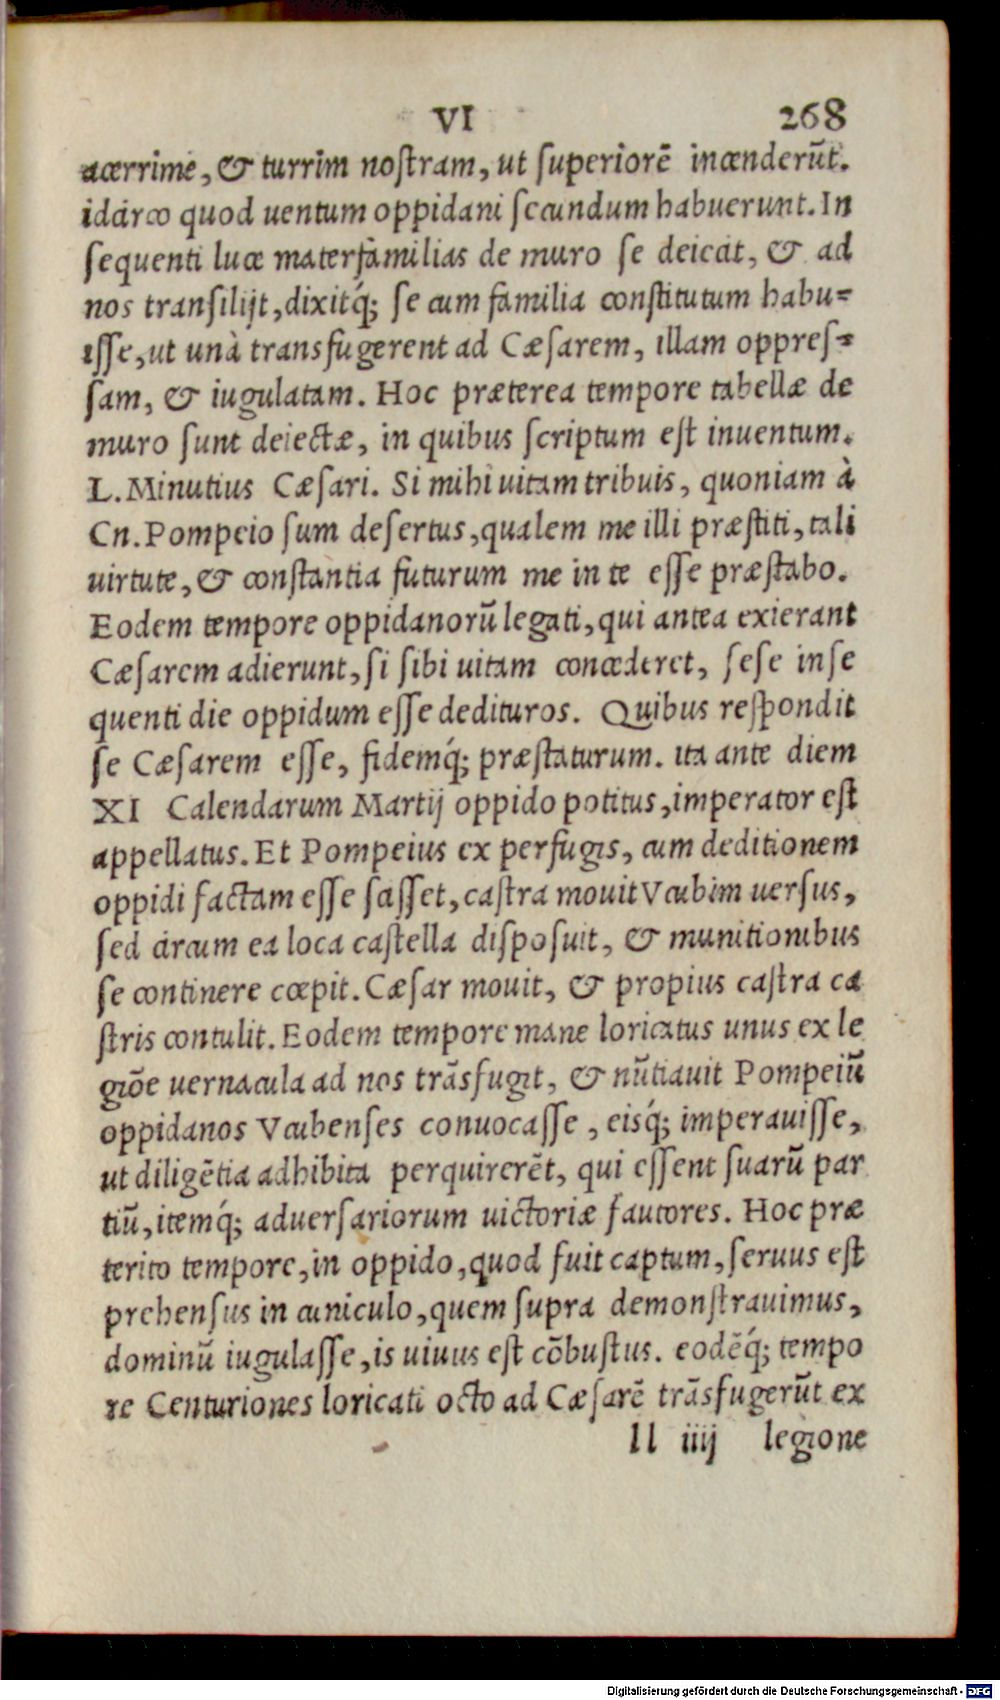 VI 268
acerrime, & turrim nostram, ut superiorē incenderũt.
idcirco quod uentum oppidani secundum habuerunt. In
sequenti luce materfàmilias de muro se deiecit, & ad
nos transilijt, dixitq́; se cum familia constitutum habu=
isse, ut unà transfugerent ad Cæsarem, illam oppres=
sam, & iugulatam. Hoc præterea tempore tabellæ de
muro sunt deiectæ, in quibus scriptum est inuentum.
L. Minutius Cæsari. Si mihi uitam tribuis, quoniam à
Cn. Pompeio sum desertus, qualem me illi præstiti, tali
uirtute, & constantia futurum me in te esse præstabo.
Eodem tempore oppidanorũ legati, qui antea exierant
Cæsarem adierunt, si sibi uitam concederet, sese inse
quenti die oppidum esse dedituros. Quibus respondit
se Cæsarem esse, fidemq́; præstaturum. ita ante diem
XI Calendarum Martij oppido potitus, imperator est
appellatus. Et Pompeius ex perfugis, cum deditionem
oppidi factam esse scisset, castra mouit Vcubim uersus,
sed circum ea loca castella disposuit, & munitionibus
se continere cœpit. Cæsar mouit, & propius castra ca
stris contulit. Eodem tempore mane loricatus unus ex le
giōe uernacula ad nos trãsfugit, & nũtiauit Pompeiũ
oppidanos Vcubenses conuocasse, eisq́; imperauisse,
ut diligētia adhibita perquirerēt, qui essent suarũ par
tiũ, itemq́; aduersariorum uictoriæ fautores. Hoc præ
terito tempore, in oppido, quod fuit captum, seruus est
prehensus in cuniculo, quem supra demonstrauimus,
dominũ iugulasse, is uiuus est cōbustus. eodēq́; tempo
re Centuriones loricati octo ad Cæsarē trãsfugerũt ex
ll iiij legione
Digitalisierung gefördert durch die Deutsche Forschungsgemeinschaft - DFG